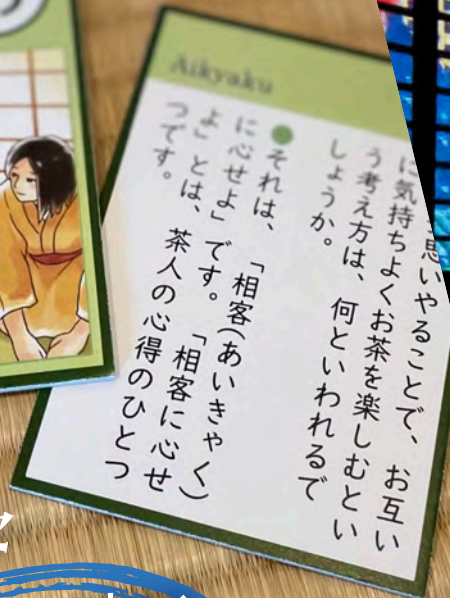 Aikyaku
思いやることで、お互い
に気持ちよくお茶を楽しむとい
う考え方は、何といわれるで
しょうか。
●それは、「相客(あいきゃく)
に心せよ」です。「相客に心せ
よ」とは、茶人の心得のひと
つです。